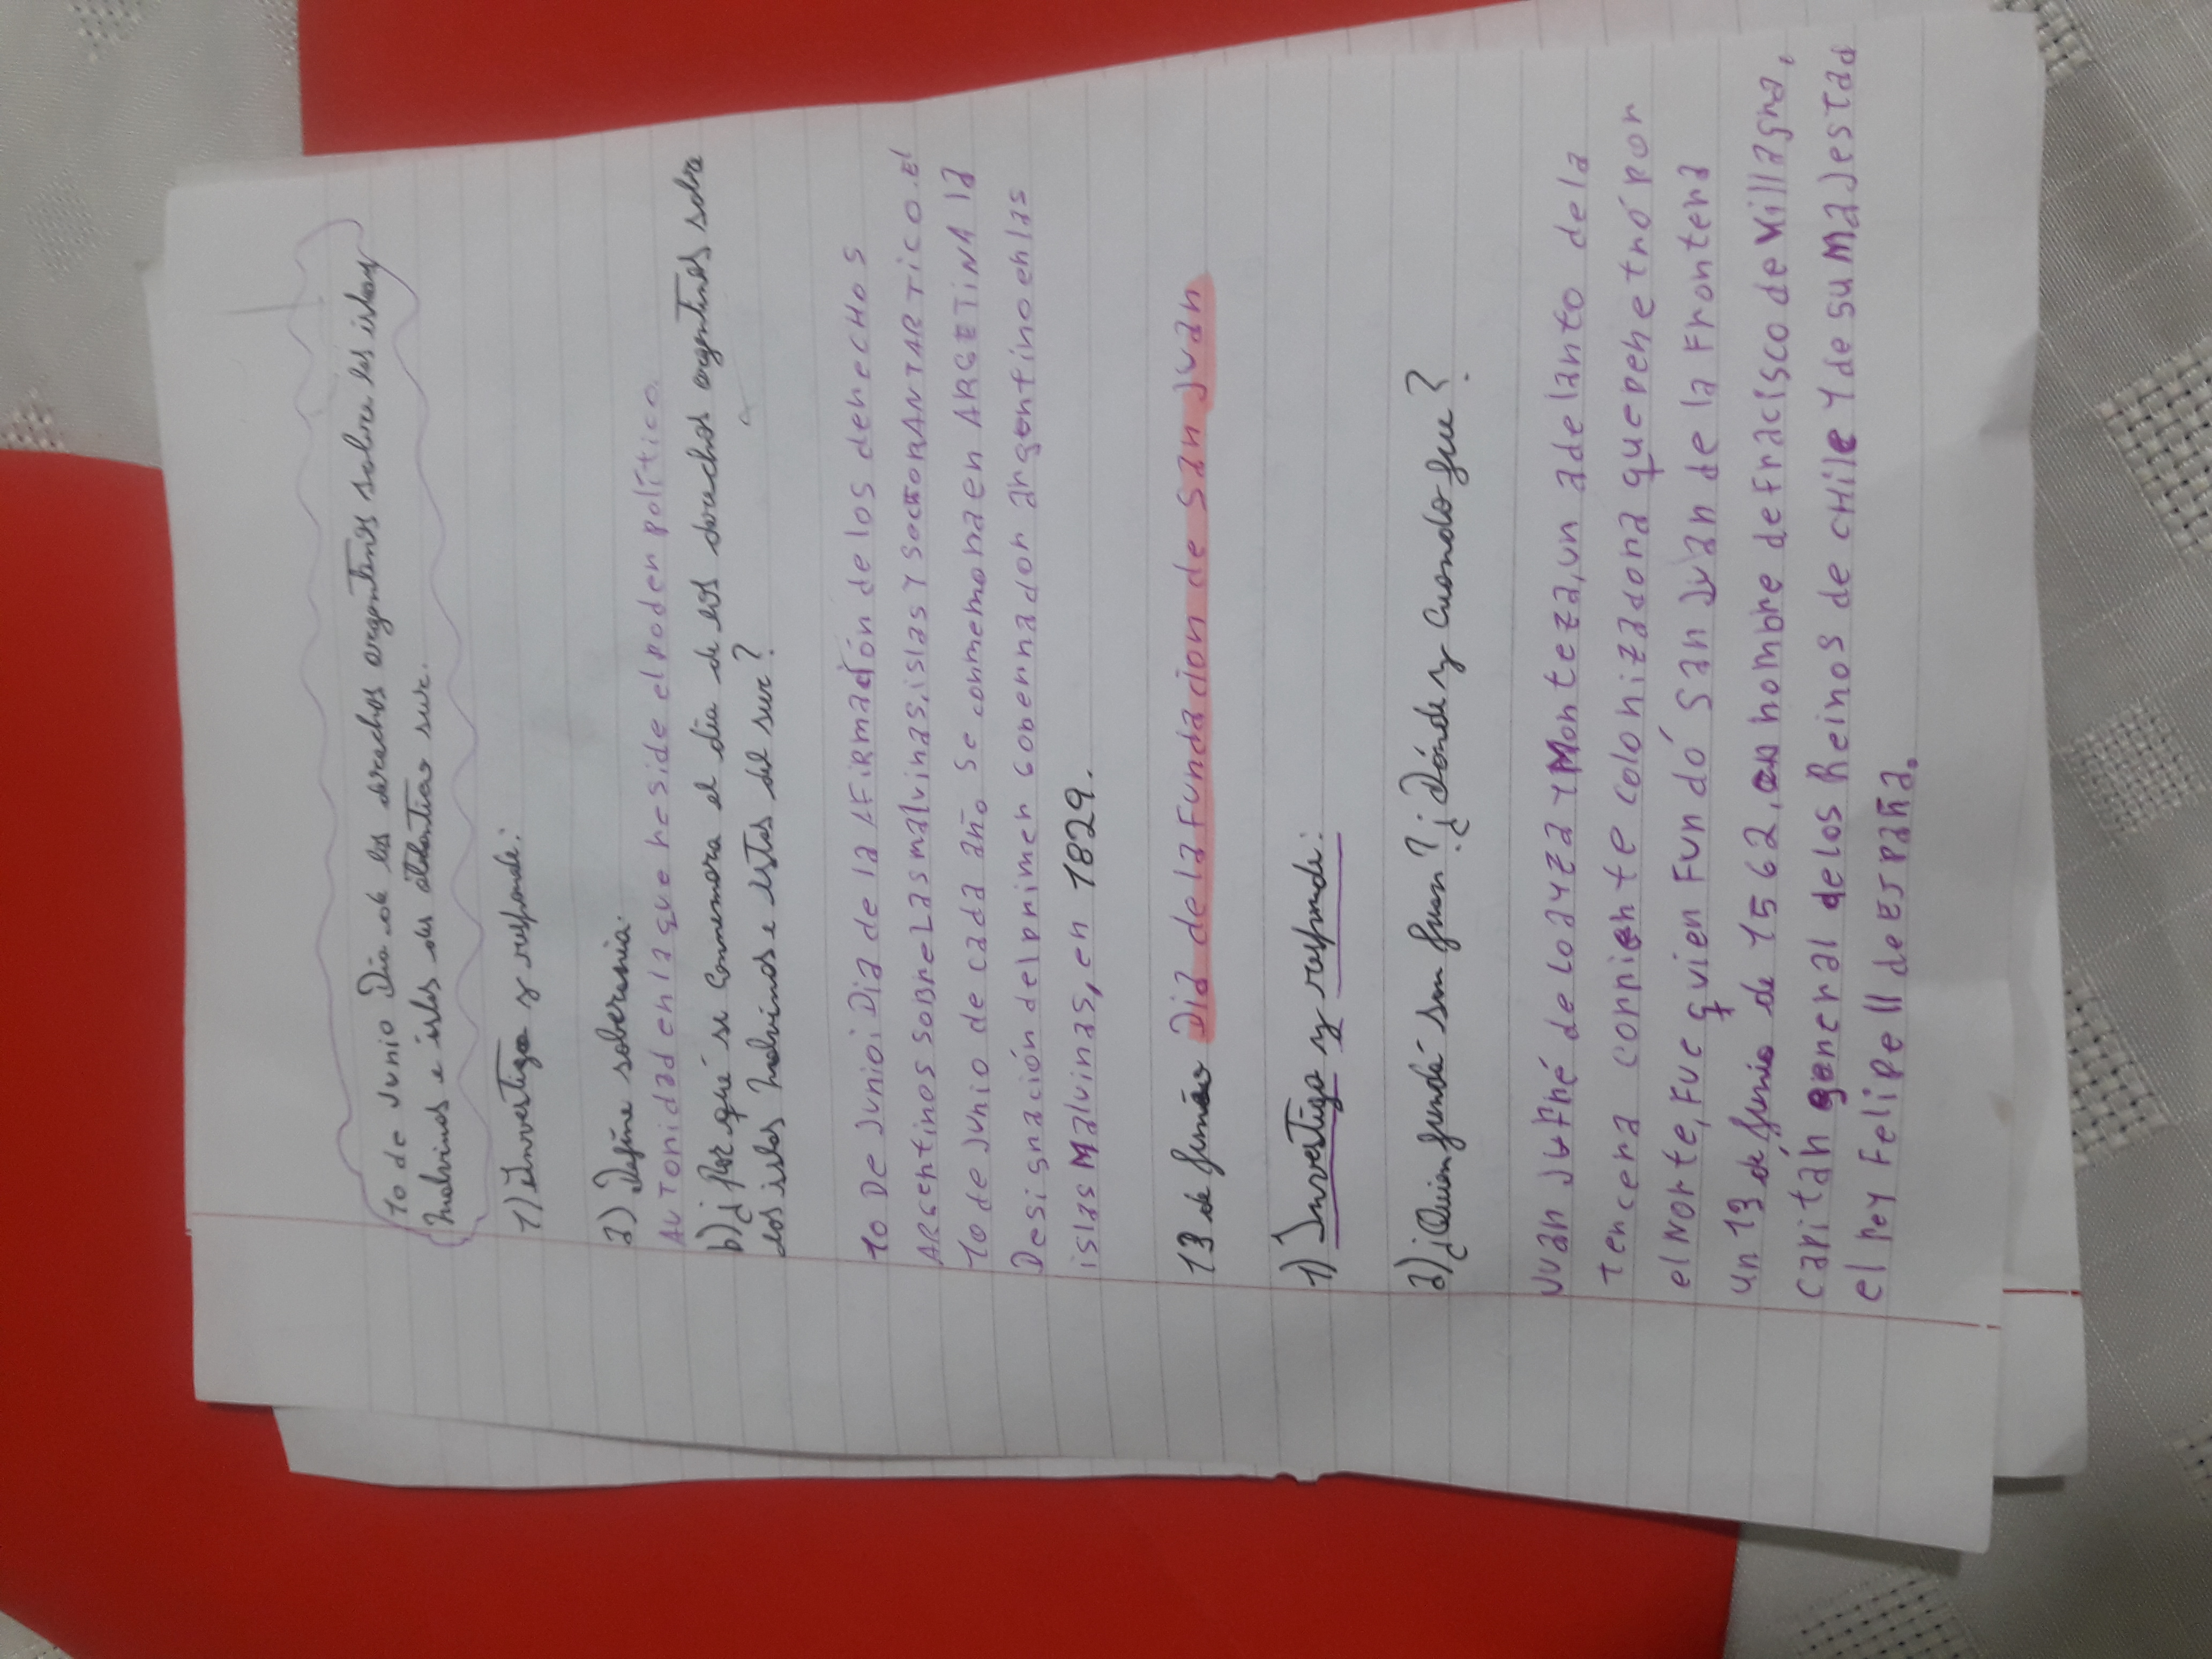 10 de Junio Día de los derechos argentinos sobre las islas
malvinas e islas del atlántico sur.
1) Investiga y responde:
a) Define soberania.
AUTORIDAD en la que reside el poder político.
b) ¿Por qué se conmemora el día de los derechos argentinos sobre
las islas malvinas e islas del sur?
10 De Junio: Dia de la AFIRmación de los derecHos
ARGentinos SOBRE Las malvinas, islas Y Sector ANTARTICO. El
10 de Junio de cada año se conmemora en ARGETINA la
Designación del primer Gobernador argentino en las
islas Malvinas, en 1829.
13 de Junio Dia de la Fundacion de San Juan
1) Investiga y responde:
a) ¿Quién fundó San Juan? ¿Dónde y cuando fue?
Juan Jufré de Loayza Y Monteza, un adelanto de la
tercera corriente colonizadora que penetró por
el Norte, Fue quien Fundó San Juan de la Frontera
un 13 de Junio de 1562, en nombre de Fracisco de Villagra,
Capitán general de los Reinos de CHile Y de su Majestad
el rey Felipe II de España.